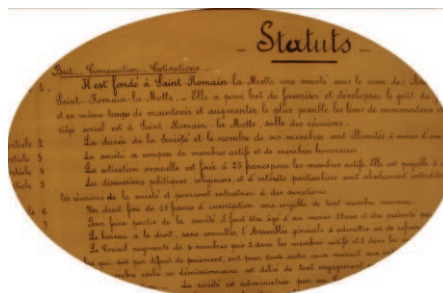 - Statuts -
But - Composition - Cotisations -
1. Il est fondé à Saint-Romain-la-Motte une société sous le nom de:
Saint-Romain-la-Motte - Elle a pour but de favoriser et développer le goût du
et en même temps de maintenir et augmenter le plus possible les liens de camaraderie
siège social est à Saint-Romain-la-Motte, salle des réunions.
article 2 La durée de la Société et le nombre de ses membres sont illimités à moins d'un
article 3 La société se compose de membres actifs et de membres honoraires.
article 4 La cotisation annuelle est fixée à 25 francs pour les membres actifs. Elle est payable
article 5 Les discussions politiques, religieuses, et d'intérêts particuliers sont absolument interdites
les réunions de la société et pourront entraîner à des sanctions.
6 Un droit fixe de 10 francs d'inscription sera exigible de tout membre nouveau.
7 Pour faire partie de la société il faut être âgé d'au moins 15 ans et être présenté par
Le bureau a le droit, sans consulter l'Assemblée générale d'admettre ou de refuser
Le Conseil augmenté de 4 membres pris 2 dans les membres actifs et 2 dans les
qui, soit par défaut de paiement, soit pour toute autre cause
membre exclu ou démissionnaire est délié de tout engagement
La société est administrée par un